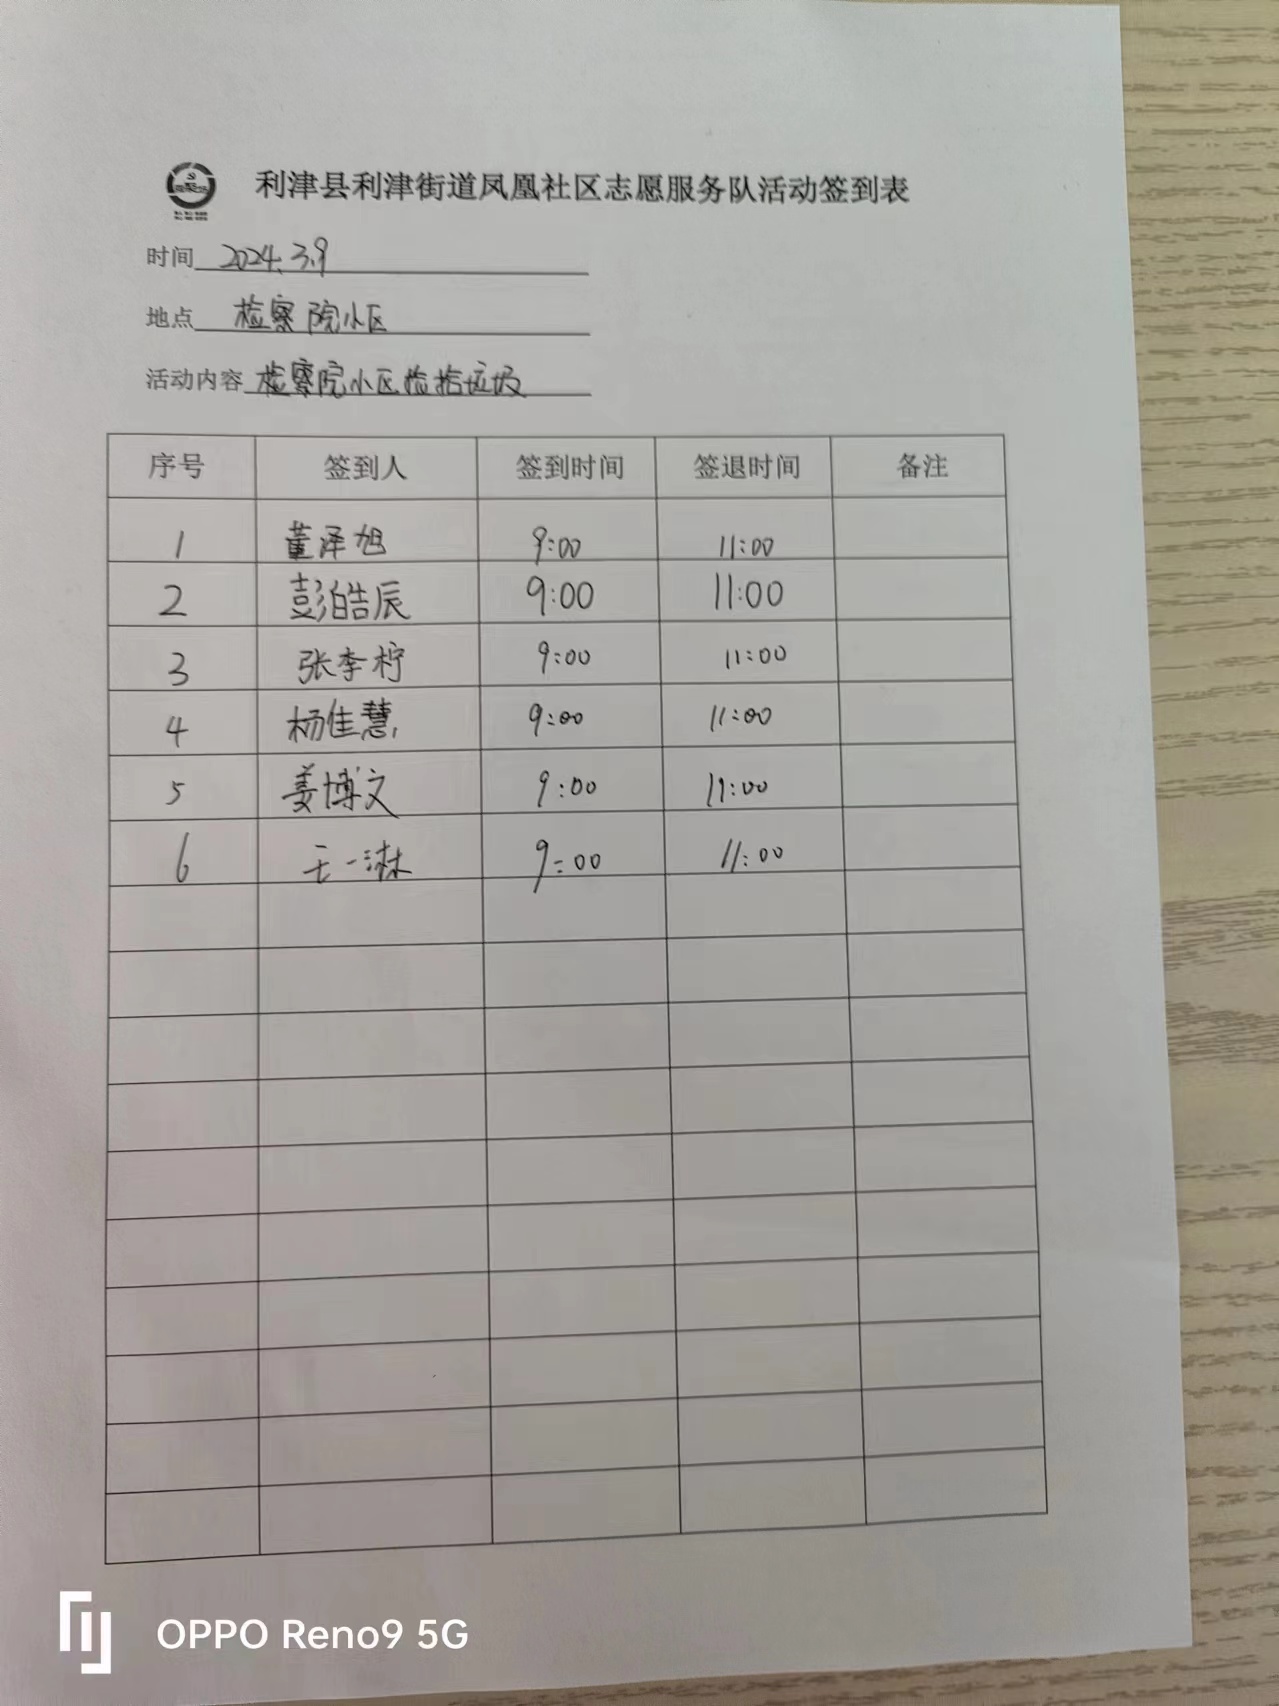 利津县利津街道凤凰社区志愿服务队活动签到表
时间 2024.3.9
地点 检察院小区
活动内容 检察院小区检拾垃圾
序号 签到人 签到时间 签退时间 备注
1 董泽旭 9:00 11:00
2 彭皓辰 9:00 11:00
3 张李柠 9:00 11:00
4 杨佳慧 9:00 11:00
5 姜博文 9:00 11:00
6 王一淋 9:00 11:00
OPPO Reno9 5G